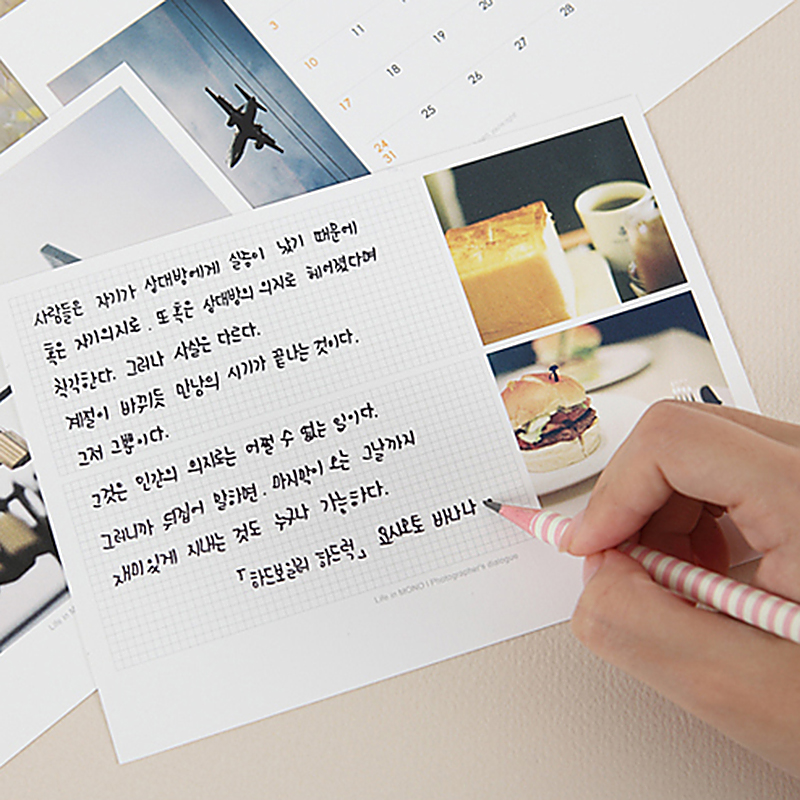 3
10 11
17 18 19 20
24 25 26 27 28
31
사람들은 자기가 상대방에게 싫증이 났기 때문에
혹은 자기의지로, 또 혹은 상대방의 의지로 헤어졌다며
착각한다. 그러나 사실은 다르다.
계절이 바뀌듯 만남의 시기가 끝나는 것이다.
그저 그뿐이다.
그것은 인간의 의지로는 어쩔 수 없는 일이다.
그러니까 뒤집어 말하면, 마지막이 오는 그날까지
재미있게 지내는 것도 누구나 가능하다.
「하드보일러 하드럭」 요시모토 바나나
Life in MONO | Photographer's dialogue
Life in M